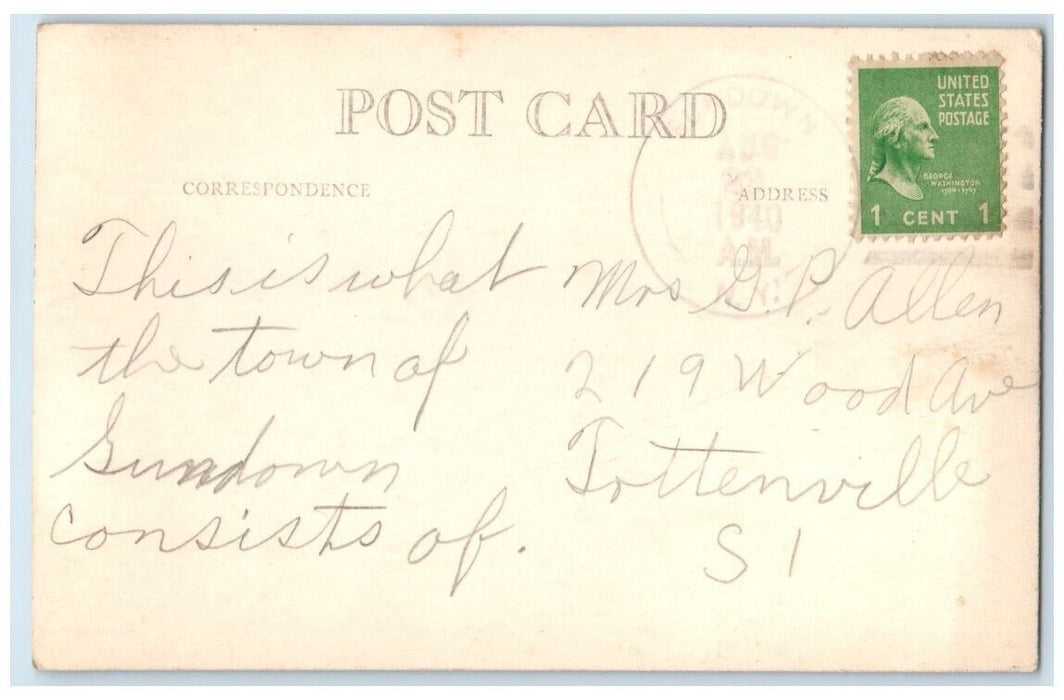 POST CARD
CORRESPONDENCE
ADDRESS
UNITED
STATES
POSTAGE
GEORGE
WASHINGTON
1 CENT 1
DOWN
AUG
1940
A.M.
N.Y.
This is what
the town of
Sundown
consists of.
Mrs G. P. Allen
219 Wood Ave
Tottenville
S I